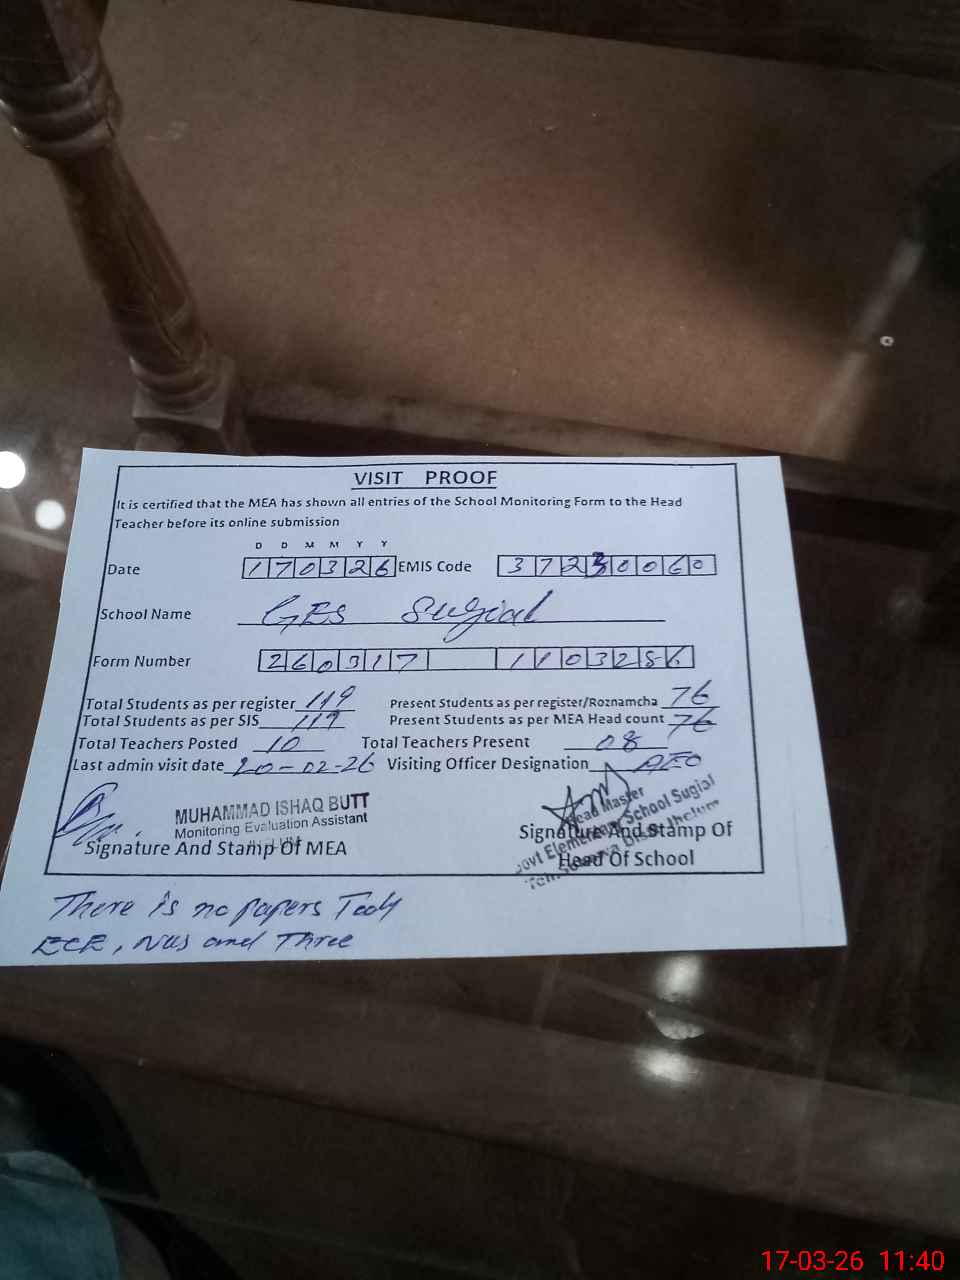 VISIT PROOF
It is certified that the MEA has shown all entries of the School Monitoring Form to the Head
Teacher before its online submission
D D M M Y Y
Date 170326 EMIS Code 37230060
School Name GES Sugial
Form Number 260317 110328
Total Students as per register 119 Present Students as per register/Roznamcha 76
Total Students as per SIS 119 Present Students as per MEA Head count 76
Total Teachers Posted 10 Total Teachers Present 08
Last admin visit date 20-02-26 Visiting Officer Designation AEO
MUHAMMAD ISHAQ BUTT
Monitoring Evaluation Assistant
Signature And Stamp Of MEA
Head Master
Govt Elementary School Sugial
Signature And Stamp Of
Head Of School
There is no papers Tody
ECE, Nus and Three
17-03-26 11:40